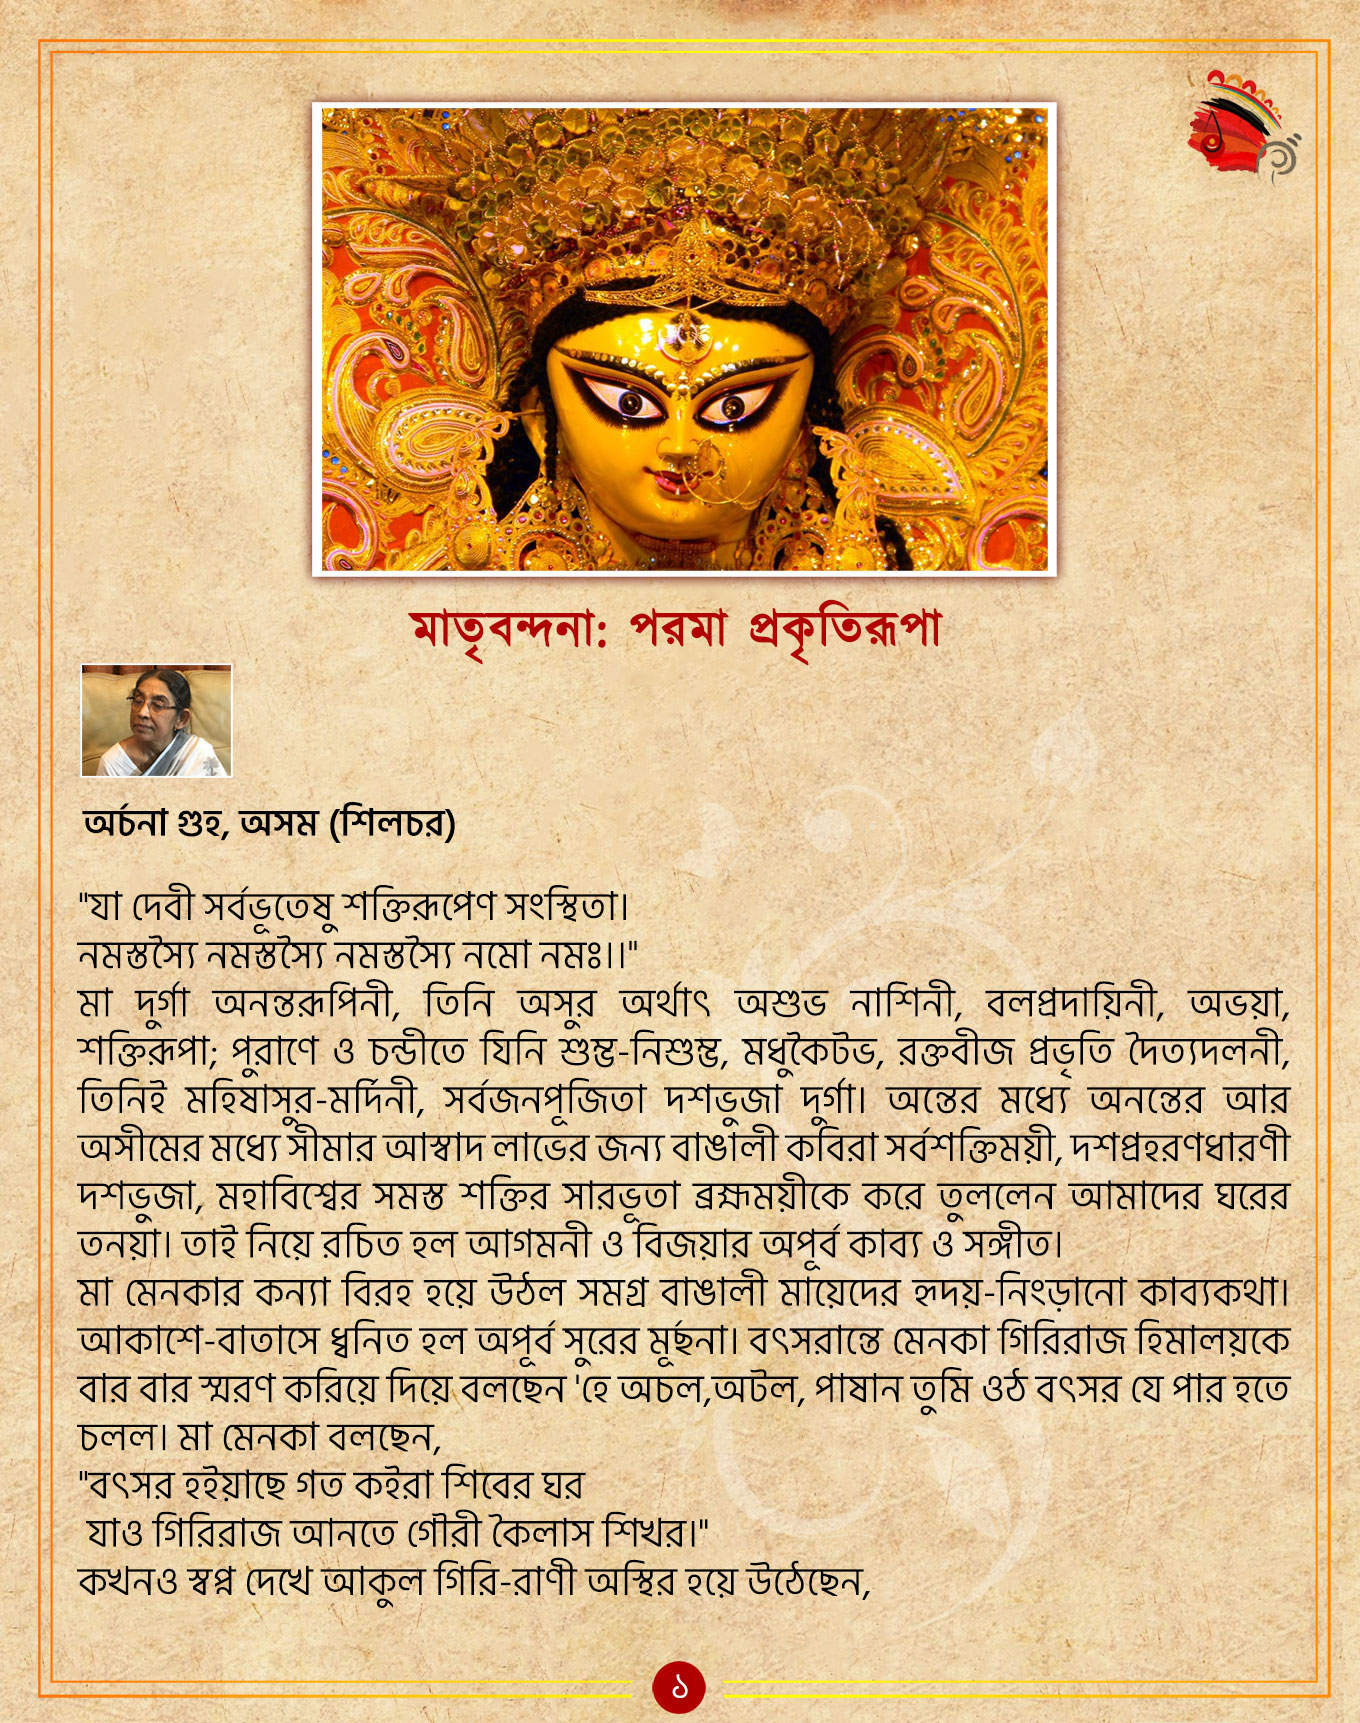 মাতৃবন্দনা: পরমা প্রকৃতিরূপা
অর্চনা গুহ, অসম (শিলচর)
"যা দেবী সর্বভূতেষু শক্তিরূপেণ সংস্থিতা।
নমস্তস্যৈ নমস্তস্যৈ নমস্তস্যৈ নমো নমঃ।।"
মা দুর্গা অনন্তরূপিনী, তিনি অসুর অর্থাৎ অশুভ নাশিনী, বলপ্রদায়িনী, অভয়া,
শক্তিরূপা; পুরাণে ও চন্ডীতে যিনি শুম্ভ-নিশুম্ভ, মধুকৈটভ, রক্তবীজ প্রভৃতি দৈত্যদলনী,
তিনিই মহিষাসুর-মর্দিনী, সর্বজনপূজিতা দশভুজা দুর্গা। অন্তের মধ্যে অনন্তের আর
অসীমের মধ্যে সীমার আস্বাদ লাভের জন্য বাঙালী কবিরা সর্বশক্তিময়ী, দশপ্রহরণধারণী
দশভুজা, মহাবিশ্বের সমস্ত শক্তির সারভূতা ব্রহ্মময়ীকে করে তুললেন আমাদের ঘরের
তনয়া। তাই নিয়ে রচিত হল আগমনী ও বিজয়ার অপূর্ব কাব্য ও সঙ্গীত।
মা মেনকার কন্যা বিরহ হয়ে উঠল সমগ্র বাঙালী মায়েদের হৃদয়-নিংড়ানো কাব্যকথা।
আকাশে-বাতাসে ধ্বনিত হল অপূর্ব সুরের মূর্ছনা। বৎসরান্তে মেনকা গিরিরাজ হিমালয়কে
বার বার স্মরণ করিয়ে দিয়ে বলছেন 'হে অচল,অটল, পাষান তুমি ওঠ বৎসর যে পার হতে
চলল। মা মেনকা বলছেন,
"বৎসর হইয়াছে গত কইরা শিবের ঘর
যাও গিরিরাজ আনতে গৌরী কৈলাস শিখর।"
কখনও স্বপ্ন দেখে আকুল গিরি-রাণী অস্থির হয়ে উঠেছেন,
১